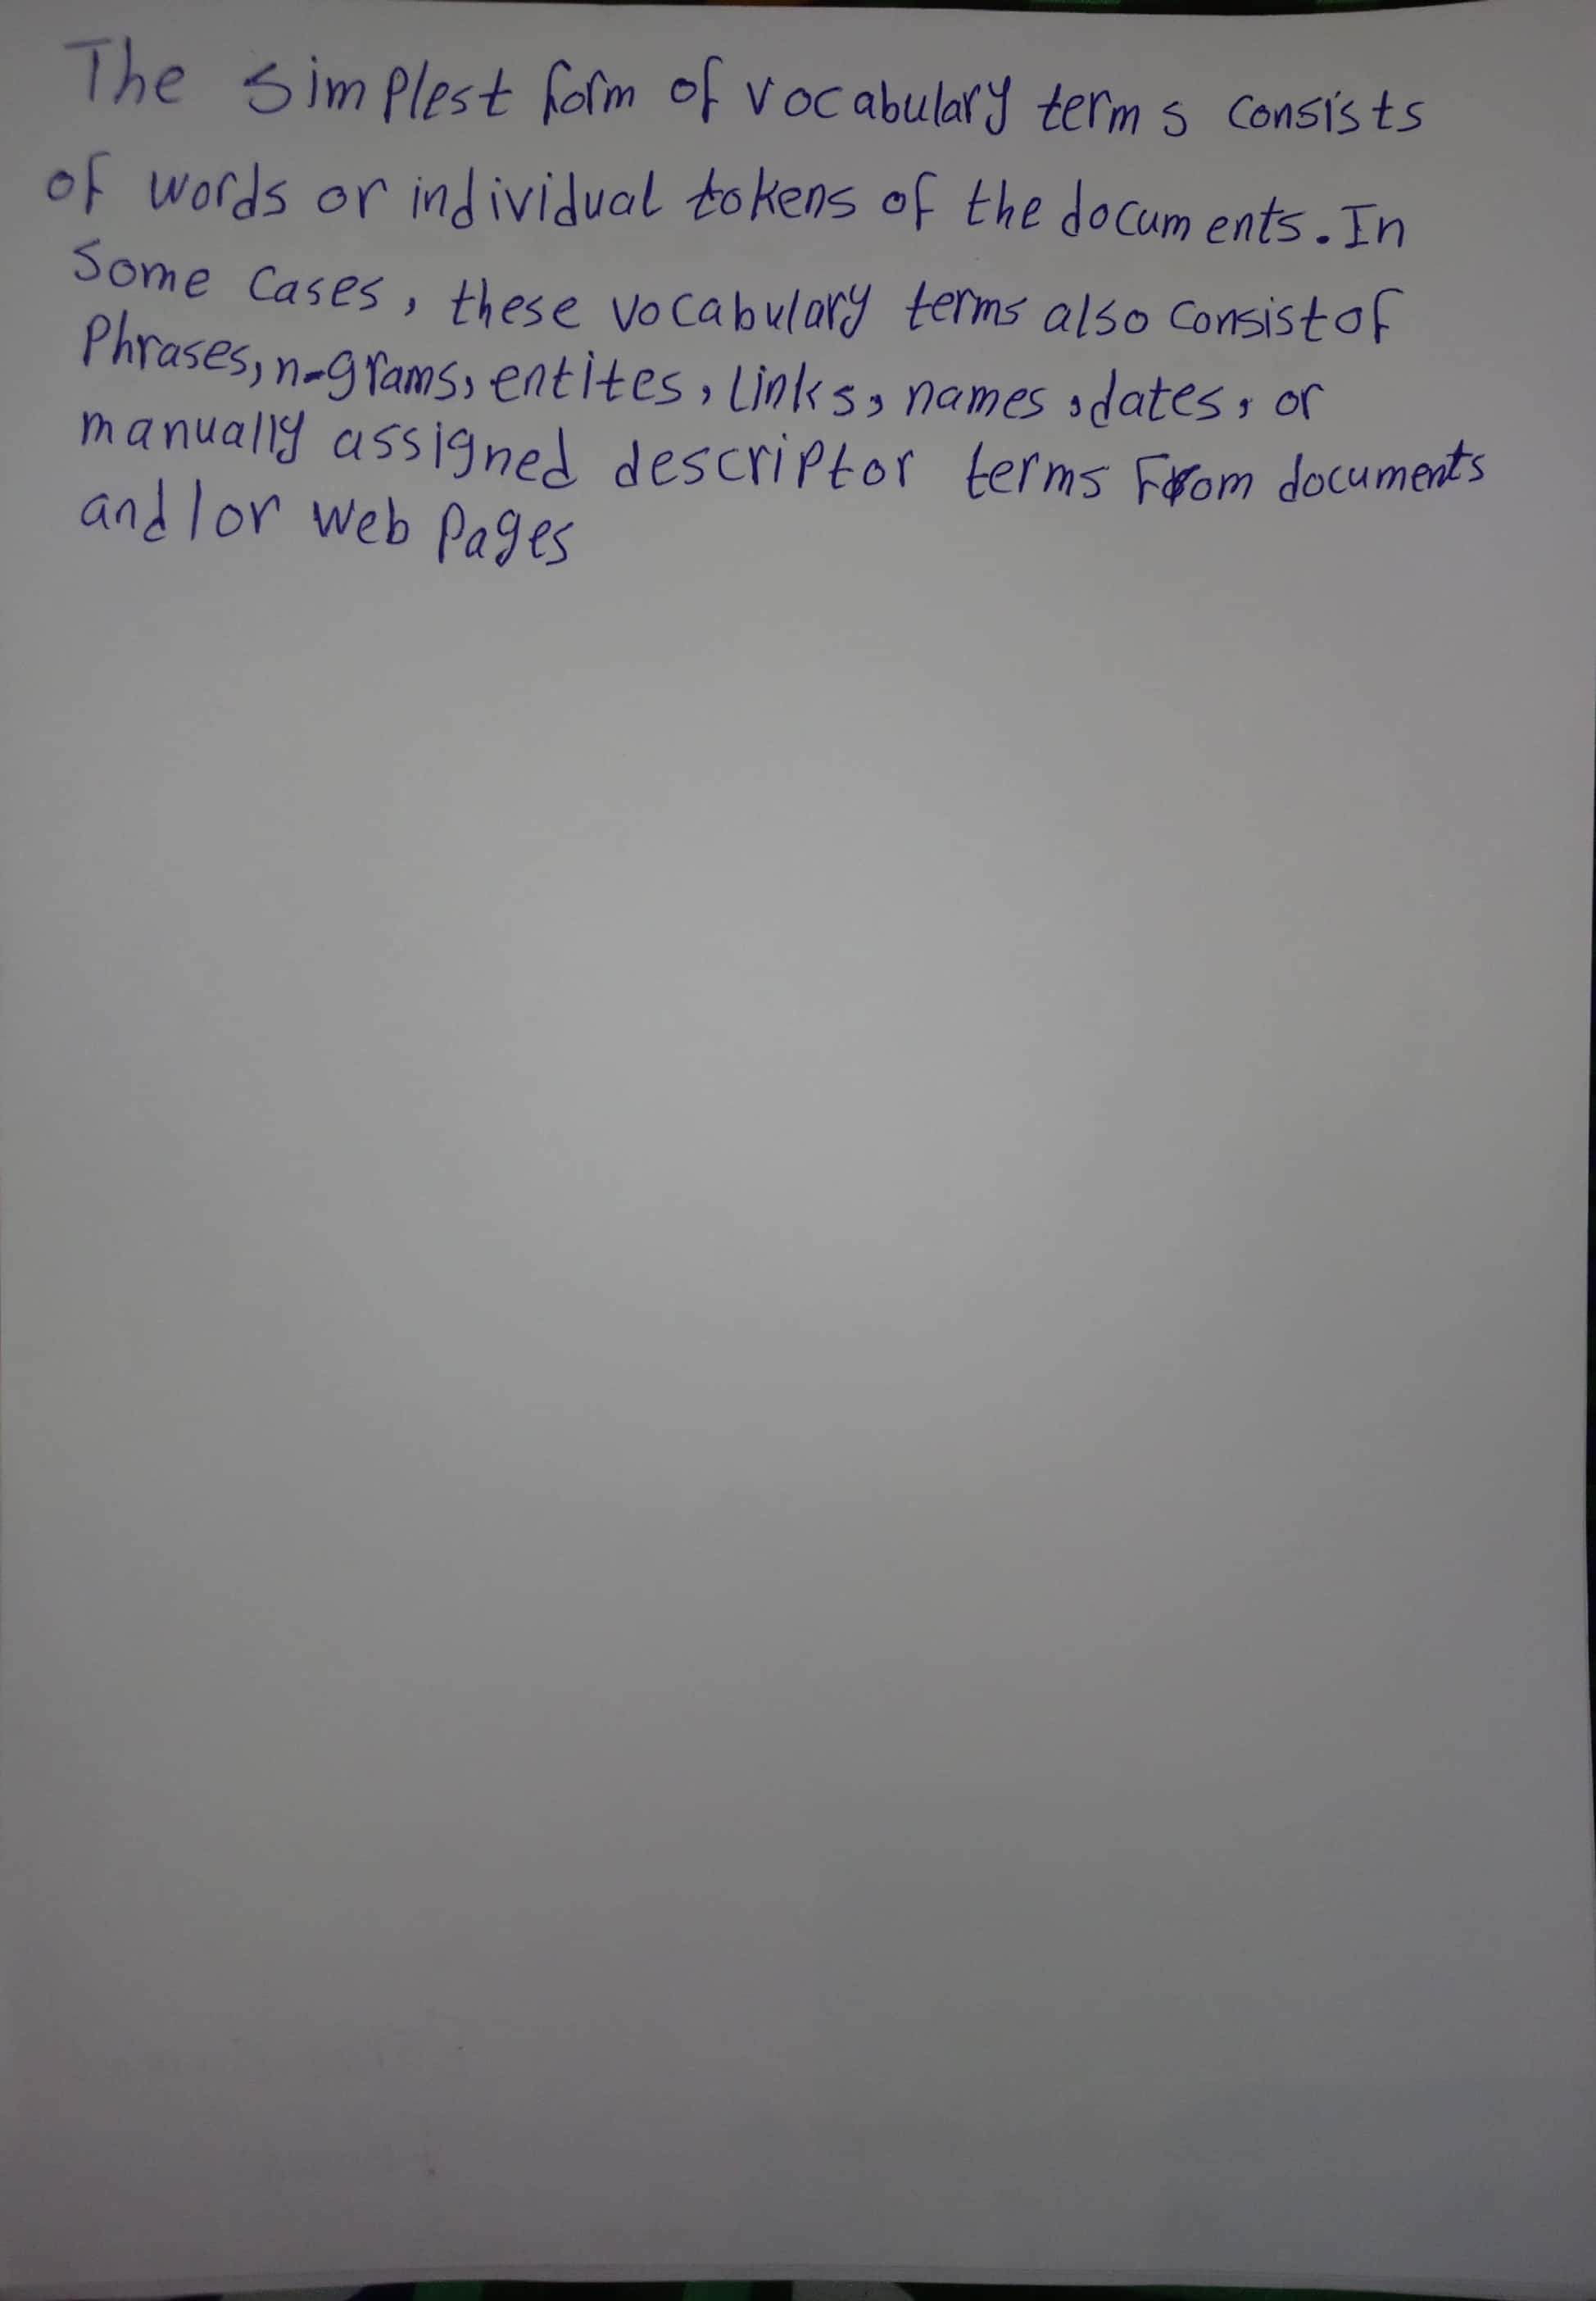 The simplest form of vocabulary terms consists
of words or individual tokens of the documents. In
Some cases, these vocabulary terms also consist of
Phrases, n-grams, entites, links, names, dates, or
manually assigned descriptor terms From documents
and/or web Pages